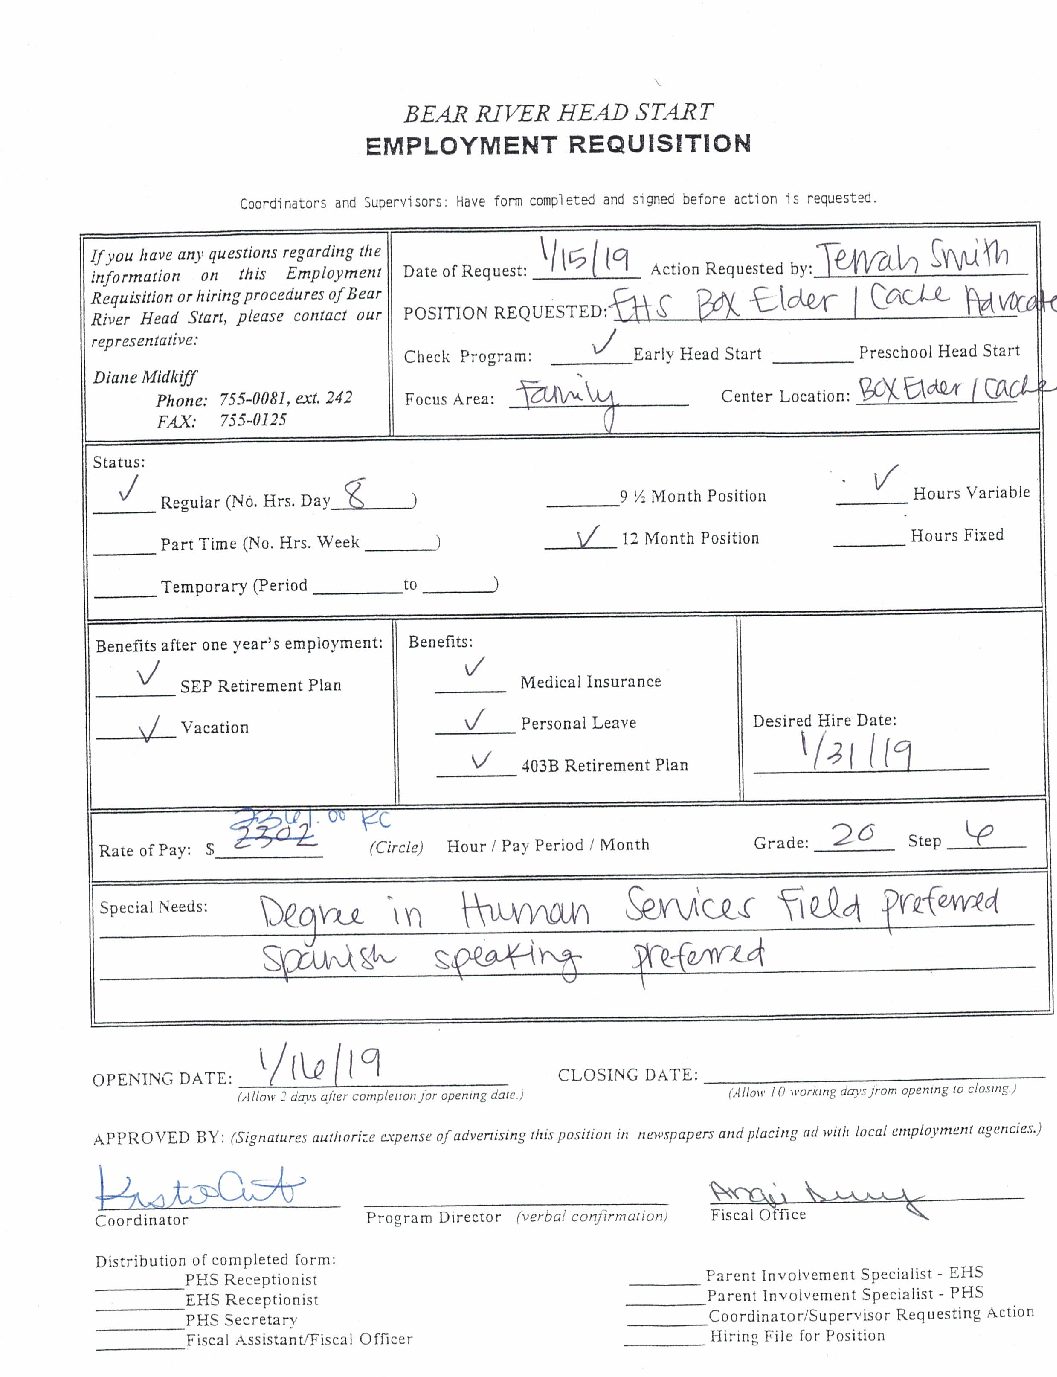 BEAR RIVER HEAD START
EMPLOYMENT REQUISITION
Coordinators and Supervisors: Have form completed and signed before action is requested.
If you have any questions regarding the
information on this Employment
Requisition or hiring procedures of Bear
River Head Start, please contact our
representative:
Diane Midkiff
Phone: 755-0081, ext. 242
FAX: 755-0125
Date of Request: 1/15/19 Action Requested by: Terrah Smith
POSITION REQUESTED: EHS Box Elder / Cache Advocate
Check Program: ✓ Early Head Start Preschool Head Start
Focus Area: Family Center Location: Box Elder / Cache
Status:
✓ Regular (No. Hrs. Day 8 ) 9 ½ Month Position ✓ Hours Variable
Part Time (No. Hrs. Week ) ✓ 12 Month Position Hours Fixed
Temporary (Period to )
Benefits after one year's employment:
✓ SEP Retirement Plan
✓ Vacation
Benefits:
✓ Medical Insurance
✓ Personal Leave
✓ 403B Retirement Plan
Desired Hire Date:
1/31/19
Rate of Pay: $ 2302 (Circle) Hour / Pay Period / Month Grade: 20 Step 6
Special Needs: Degree in Human Services Field preferred
Spanish speaking preferred
OPENING DATE: 1/16/19 CLOSING DATE:
(Allow 2 days after completion for opening date.) (Allow 10 working days from opening to closing.)
APPROVED BY: (Signatures authorize expense of advertising this position in newspapers and placing ad with local employment agencies.)
Coordinator Program Director (verbal confirmation) Fiscal Office
Distribution of completed form:
PHS Receptionist
EHS Receptionist
PHS Secretary
Fiscal Assistant/Fiscal Officer
Parent Involvement Specialist - EHS
Parent Involvement Specialist - PHS
Coordinator/Supervisor Requesting Action
Hiring File for Position